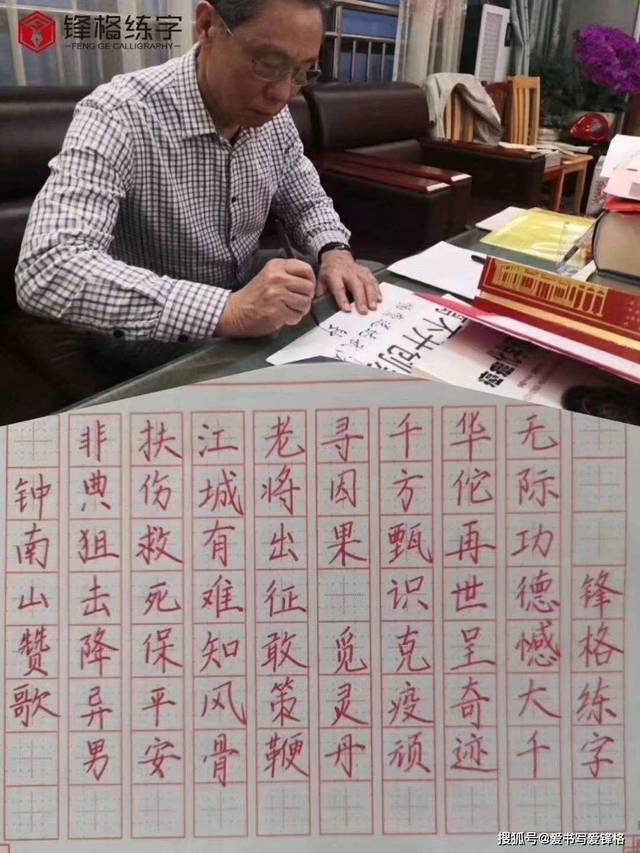 锋格练字
FENG GE CALLIGRAPHY
钟南山赞歌
非典狙击降异男
扶伤救死保平安
江城有难知风骨
老将出征敢策鞭
寻因果 觅灵丹
千方甄识克疫顽
华佗再世呈奇迹
无际功德憾大千
锋格练字
搜狐号@爱书写爱锋格